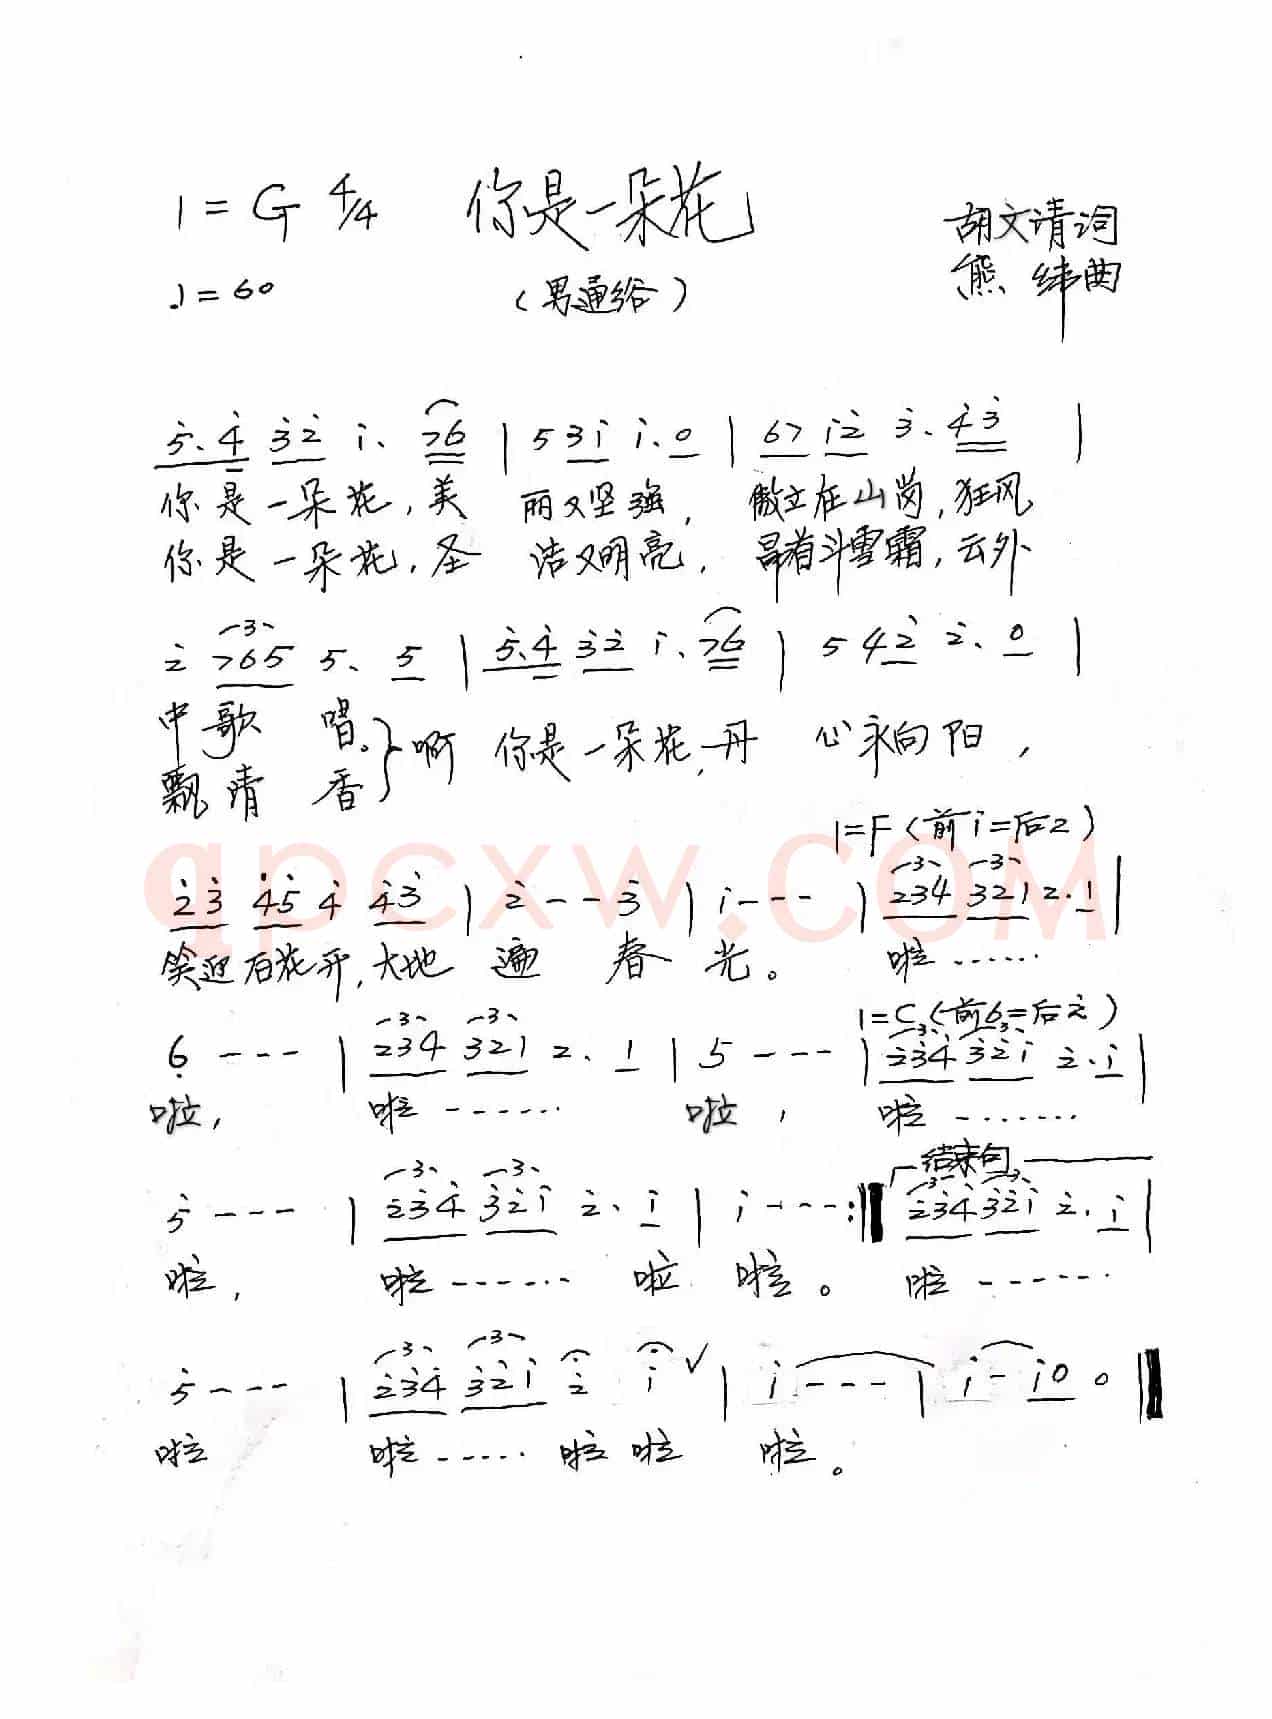 1=G 4/4 你是一朵花 胡文请词
♩=60 (男通俗) 熊 纬曲
5̇. 4̇ 3̇ 2̇ 1̇. 7 6 | 5 3 1̇ 1̇. 0 | 6 7 1̇ 2̇ 3̇. 4̇ 3̇ |
你是一朵花,美 丽又坚强, 傲立在山岗,狂风
你是一朵花,圣 洁又明亮, 昂首斗雪霜,云外
2̇ 7 6 5 5. 5 | 5̇. 4̇ 3̇ 2̇ 1̇. 7 6 | 5 4 2̇ 2̇. 0 |
中歌 唱。} 啊 你是一朵花,丹 心永向阳,
飘清 香
1=F (前1̇=后2)
2̇ 3̇ 4̇ 5̇ 4̇ 4̇ 3̇ | 2̇ - - 3̇ | 1̇ - - - | 2 3 4 3 2 1 2. 1 |
笑迎百花开,大地 遍 春 光。 啦 ......
1=C (前6=后2̇)
6̣ - - - | 2 3 4 3 2 1 2. 1 | 5 - - - | 2̇ 3̇ 4̇ 3̇ 2̇ 1̇ 2̇. 1̇ |
啦, 啦 ...... 啦, 啦 ......
结束句
5̇ - - - | 2̇ 3̇ 4̇ 3̇ 2̇ 1̇ 2̇. 1̇ | 1̇ - - - :‖ 2̇ 3̇ 4̇ 3̇ 2̇ 1̇ 2̇. 1̇ |
啦, 啦 ...... 啦 啦。 啦 ......
5̇ - - - | 2̇ 3̇ 4̇ 3̇ 2̇ 1̇ 2̇ 1̇ ✓ | 1̇ - - - | 1̇ - 1̇ 0 0 ‖
啦 啦 ...... 啦 啦 啦。
qpcxw.com